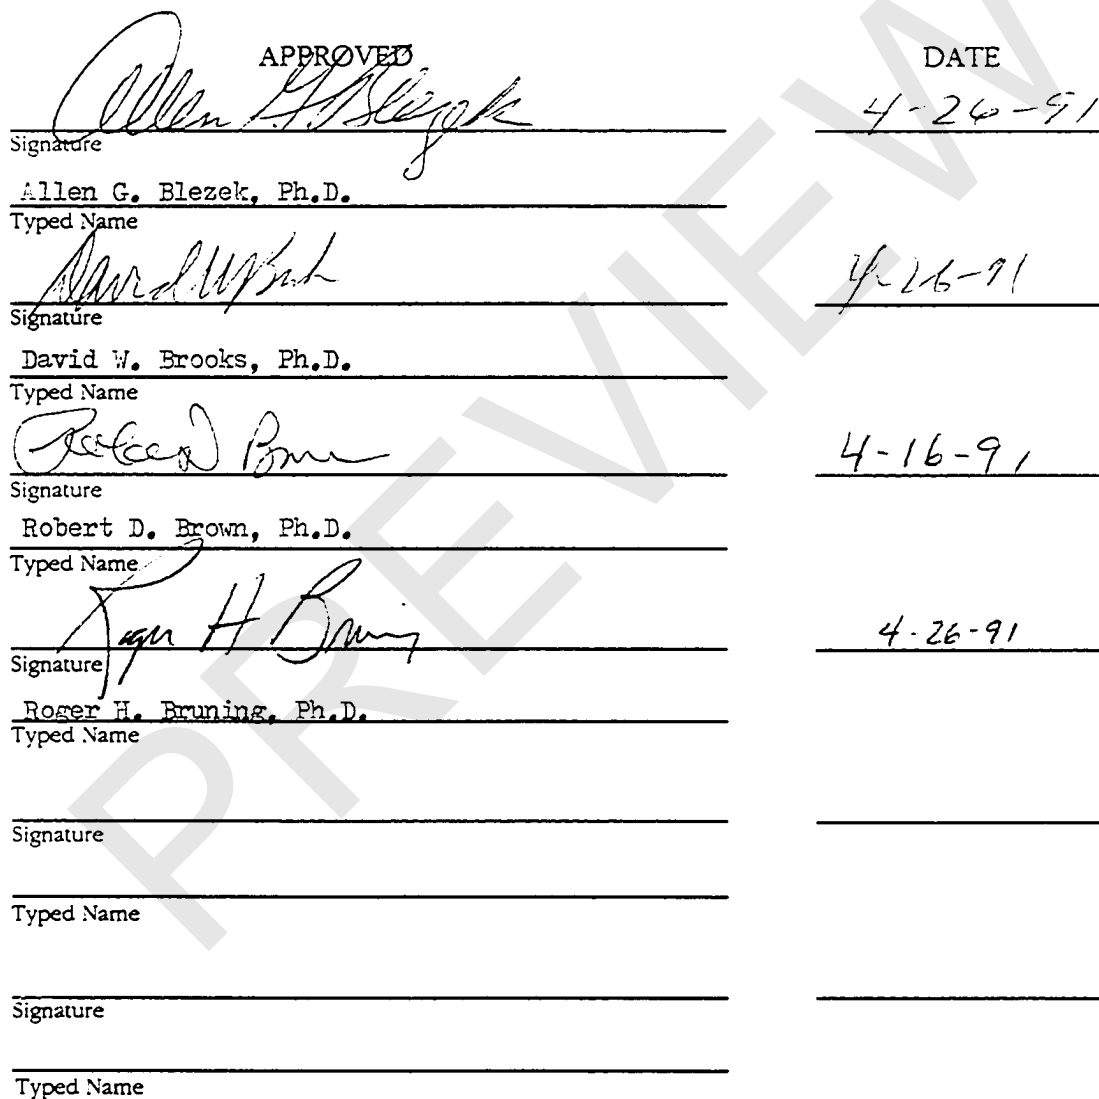 APPROVED DATE
Allen G. Blezek 4-26-91
Signature
Allen G. Blezek, Ph.D.
Typed Name
David W Brooks 4-26-91
Signature
David W. Brooks, Ph.D.
Typed Name
Robert D Brown 4-16-91
Signature
Robert D. Brown, Ph.D.
Typed Name
Roger H Bruning 4-26-91
Signature
Roger H. Bruning, Ph.D.
Typed Name
Signature
Typed Name
Signature
Typed Name
PREVIEW